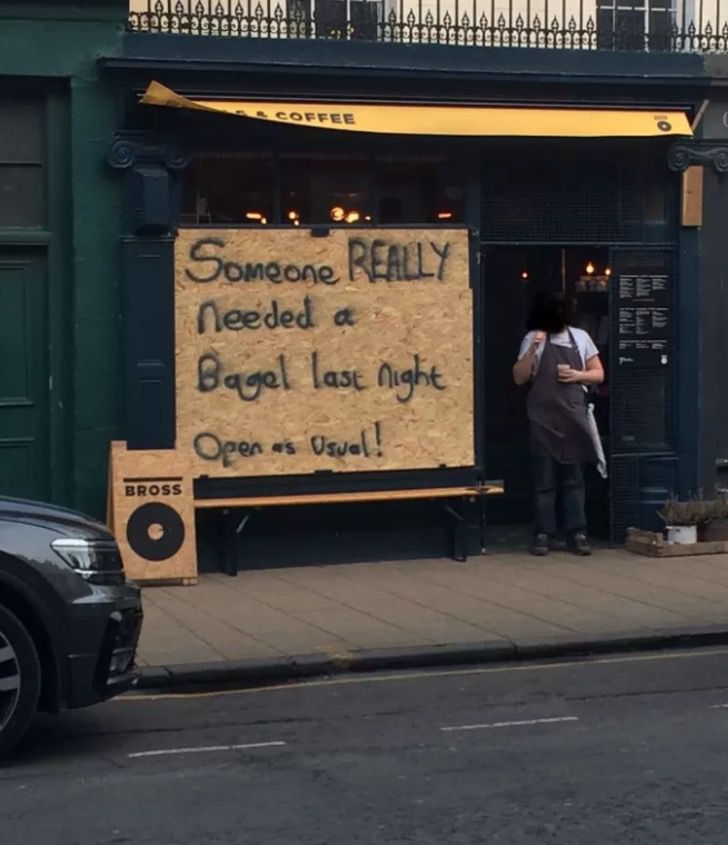 & COFFEE
Someone REALLY
needed a
Bagel last night
Open as Usual!
BROSS